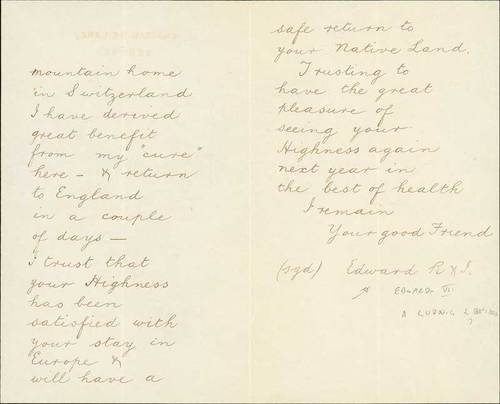 mountain home
in Switzerland
I have derived
great benefit
from my "cure"
here – & return
to England
in a couple
of days –
I trust that
your Highness
has been
satisfied with
your stay in
Europe &
will have a
safe return to
your Native Land.
Trusting to
have the great
pleasure of
seeing your
Highness again
next year in
the best of health
I remain
Your good Friend
(sgd) Edward R & I.
EDWARD VII